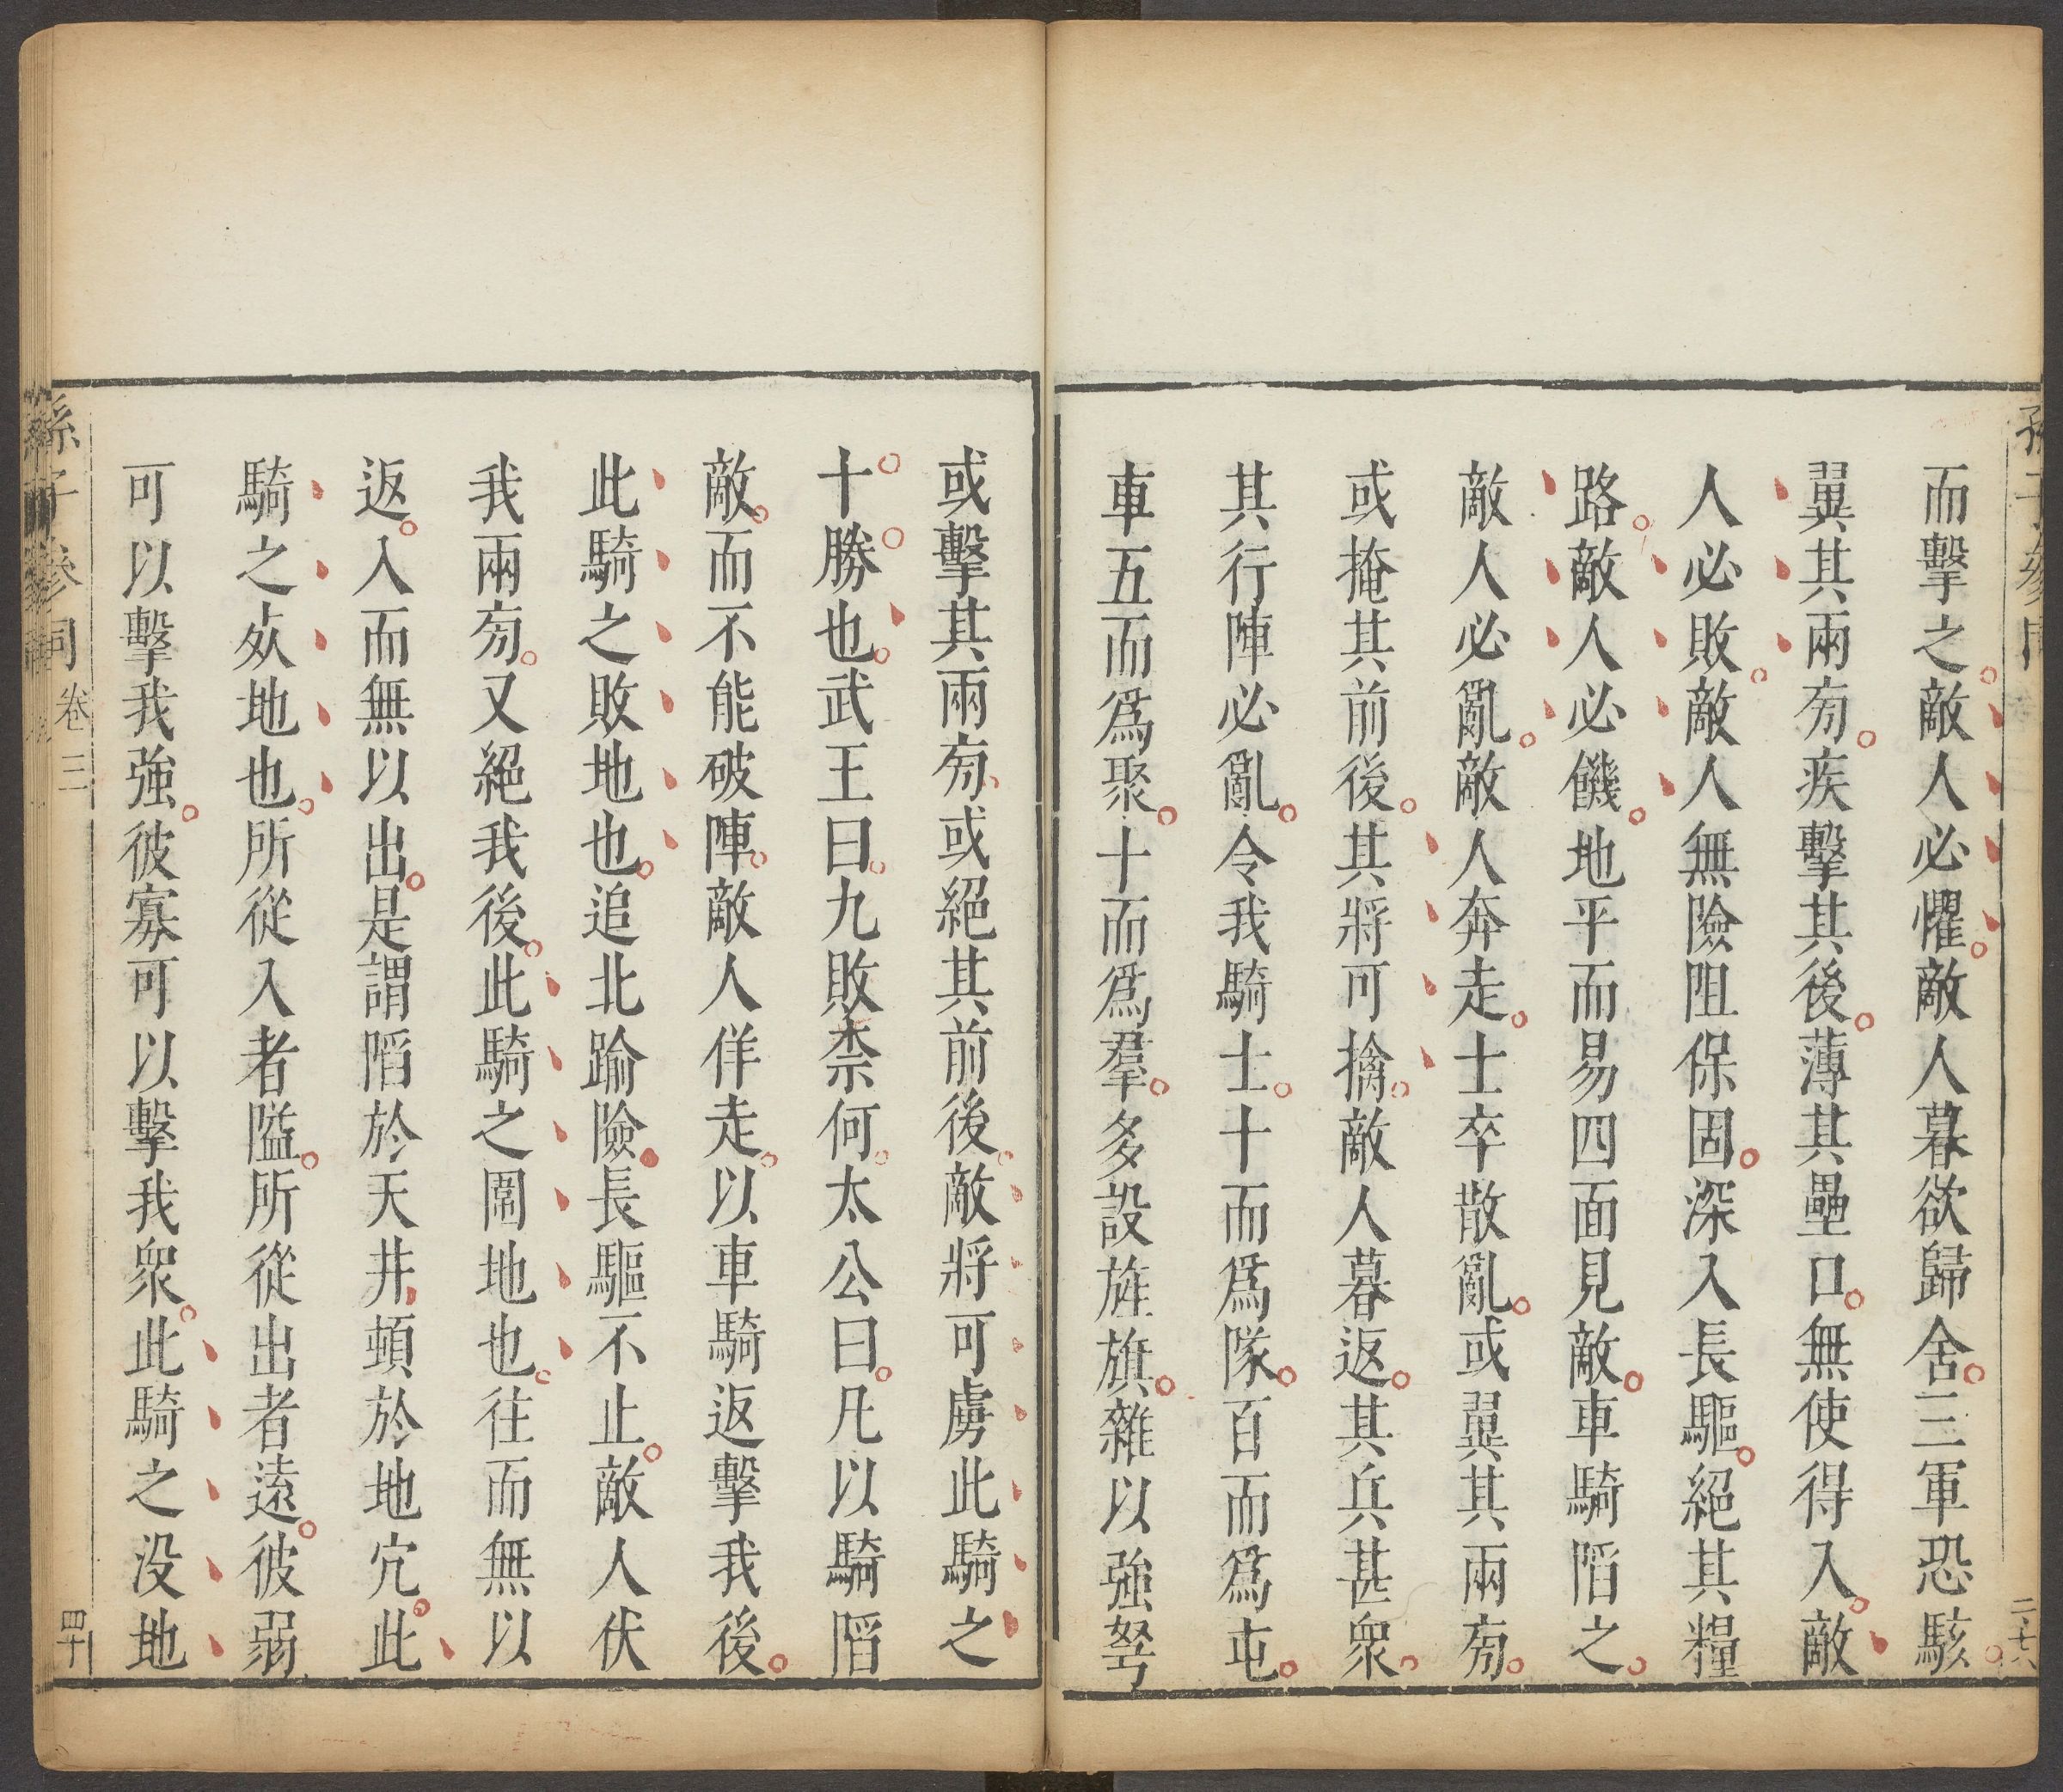 而擊之敵人必懼敵人暮欲歸舍三軍恐駭
翼其兩旁疾擊其後薄其壘口無使得入敵
人必敗敵人無險阻保固深入長驅絕其糧
路敵人必饑地平而易四面見敵車騎陷之
敵人必亂敵人奔走士卒散亂或翼其兩旁
或掩其前後其將可擒敵人暮返其兵甚衆
其行陣必亂令我騎士十而爲隊百而爲屯
車五而爲聚十而爲羣多設旌旗雜以強弩
或擊其兩旁或絕其前後敵將可虜此騎之
十勝也武王曰九敗柰何太公曰凡以騎陷
敵而不能破陣敵人佯走以車騎返擊我後
此騎之敗地也追北踰險長驅不止敵人伏
我兩旁又絕我後此騎之圍地也往而無以
返入而無以出是謂陷於天井頓於地穴此
騎之死地也所從入者隘所從出者遠彼弱
可以擊我強彼寡可以擊我衆此騎之没地
孫子參同 卷三
四十